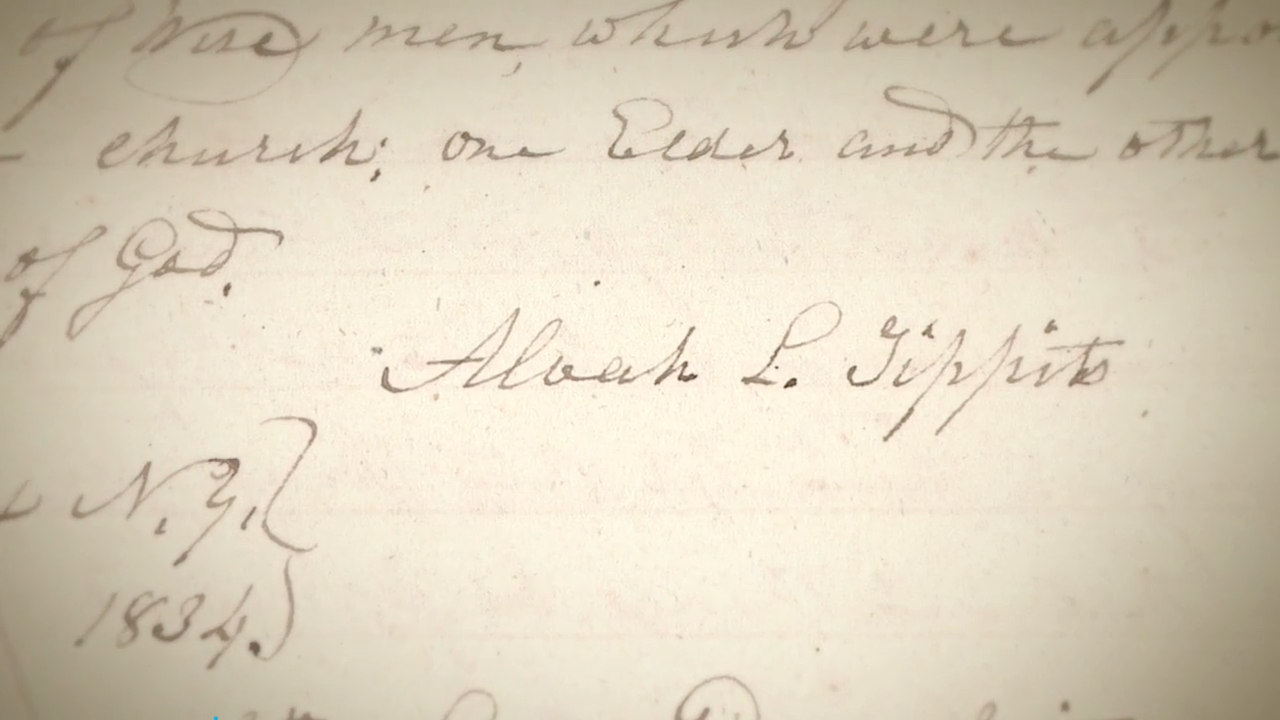 of Wise men, which were appo
church; one Elder and the other
of God.
Alvah L. Tippits
N.Y.
1834.